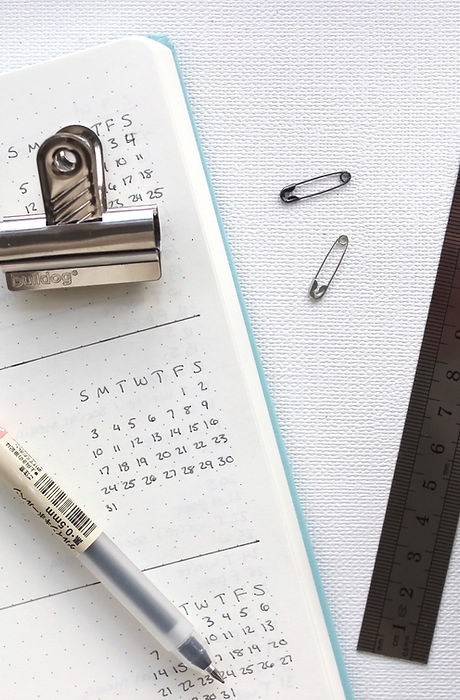 S M T F S
3 4
5 10 11
12 17 18
23 24 25
bulldog®
S M T W T F S
1 2
3 4 5 6 7 8 9
10 11 12 13 14 15 16
17 18 19 20 21 22 23
24 25 26 27 28 29 30
31
黒・0.5mm
T W T F S
3 4 5 6
7 10 11 12 13
14 15 17 18 19 20
21 22 23 24 25 26 27
30 31
1 2 3 4 5 6 7 8 9